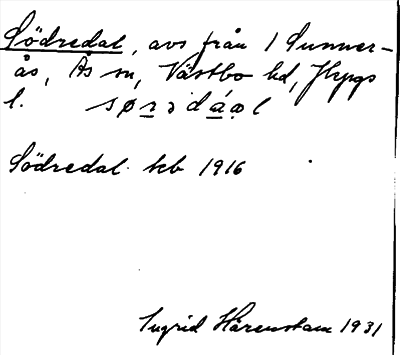 Södredal, avs från 1 Sunner-
ås, Ås sn, Västbo hd, Jkpgs
l.
Södredal kb 1916
Ingrid Härenstam 1931